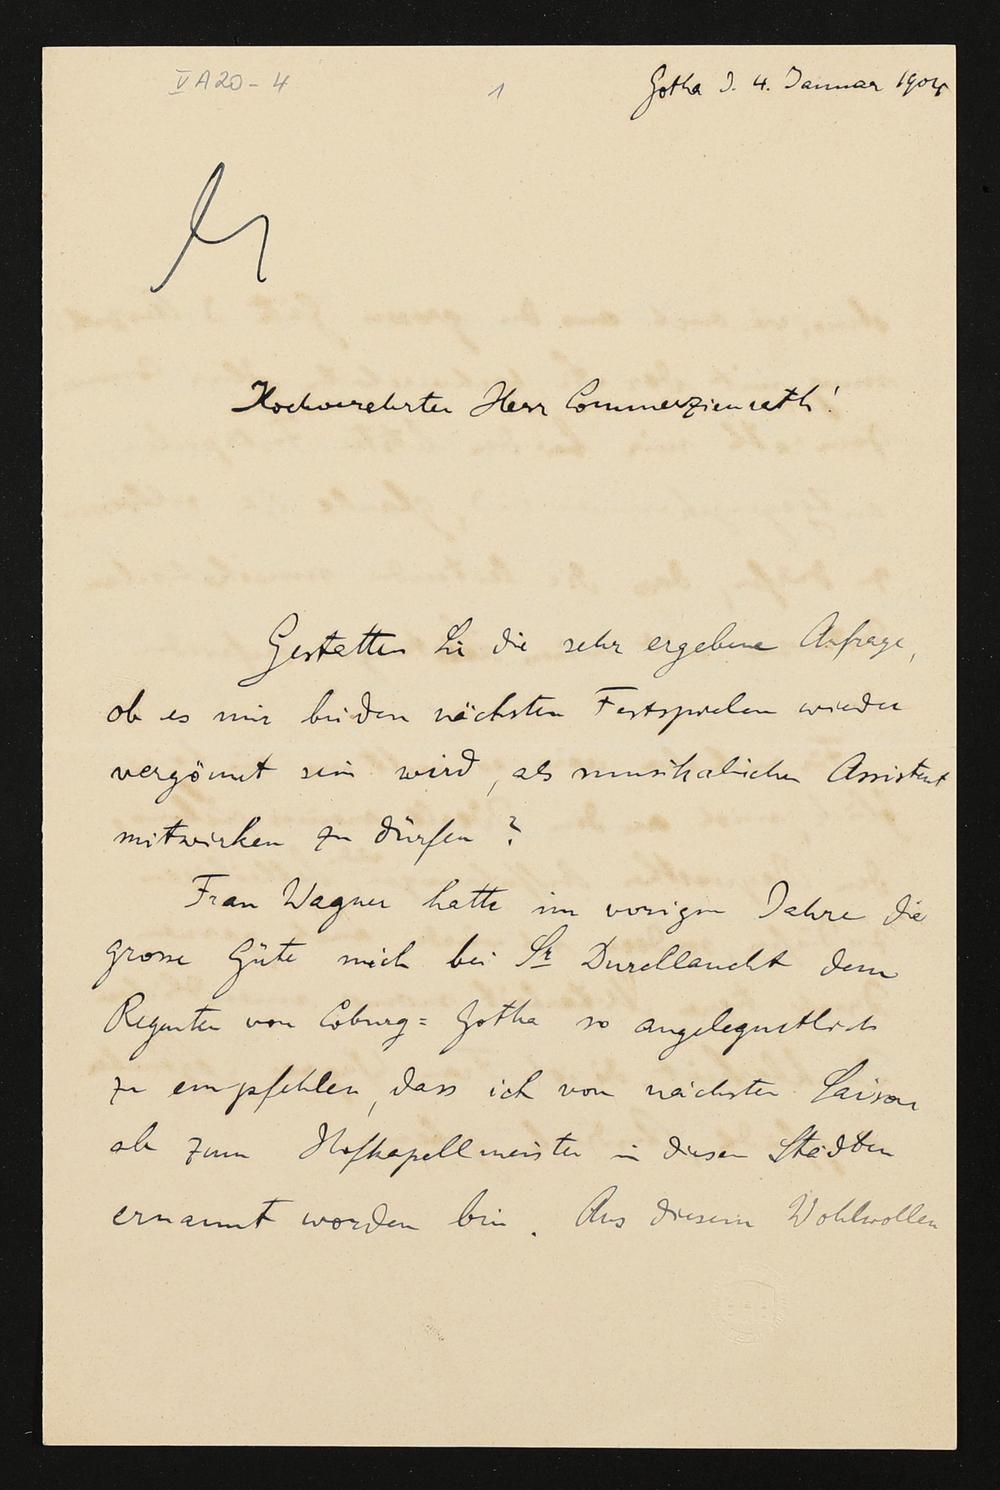 V A 20 - 4
1
Gotha d. 4. Januar 1904
Hochverehrter Herr Commerzienrath!
Gestatten Sie die sehr ergebene Anfrage,
ob es mir bei den nächsten Festspielen wieder
vergönnt sein wird, als musikalischer Assistent
mitwirken zu dürfen ?
Frau Wagner hatte im vorigen Jahre die
grosse Güte mich bei Sr Durchlaucht dem
Regenten von Coburg= Gotha so angelegentlich
zu empfehlen, dass ich von nächster Saison
ab zum Hofkapellmeister in diesen Städten
ernannt worden bin. Aus diesem Wohlwollen